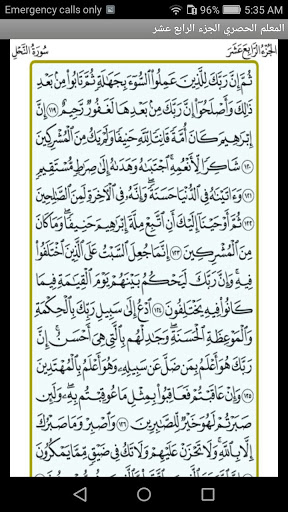 Emergency calls only 5:35 AM
المعلم الحصري الجزء الرابع عشر
الجزء الرابع عشر سورة النحل
ثُمَّ إِنَّ رَبَّكَ لِلَّذِينَ عَمِلُوا۟ ٱلسُّوٓءَ بِجَهَٰلَةٍ ثُمَّ تَابُوا۟ مِنۢ بَعْدِ
ذَٰلِكَ وَأَصْلَحُوٓا۟ إِنَّ رَبَّكَ مِنۢ بَعْدِهَا لَغَفُورٌ رَّحِيمٌ ١١٩ إِنَّ
إِبْرَٰهِيمَ كَانَ أُمَّةً قَانِتًا لِّلَّهِ حَنِيفًا وَلَمْ يَكُ مِنَ ٱلْمُشْرِكِينَ
١٢٠ شَاكِرًا لِّأَنْعُمِهِ ٱجْتَبَىٰهُ وَهَدَىٰهُ إِلَىٰ صِرَٰطٍ مُّسْتَقِيمٍ
١٢١ وَءَاتَيْنَٰهُ فِى ٱلدُّنْيَا حَسَنَةً وَإِنَّهُۥ فِى ٱلْءَاخِرَةِ لَمِنَ ٱلصَّٰلِحِينَ
١٢٢ ثُمَّ أَوْحَيْنَآ إِلَيْكَ أَنِ ٱتَّبِعْ مِلَّةَ إِبْرَٰهِيمَ حَنِيفًا وَمَا كَانَ
مِنَ ٱلْمُشْرِكِينَ ١٢٣ إِنَّمَا جُعِلَ ٱلسَّبْتُ عَلَى ٱلَّذِينَ ٱخْتَلَفُوا۟
فِيهِ وَإِنَّ رَبَّكَ لَيَحْكُمُ بَيْنَهُمْ يَوْمَ ٱلْقِيَٰمَةِ فِيمَا
كَانُوا۟ فِيهِ يَخْتَلِفُونَ ١٢٤ ٱدْعُ إِلَىٰ سَبِيلِ رَبِّكَ بِٱلْحِكْمَةِ
وَٱلْمَوْعِظَةِ ٱلْحَسَنَةِ وَجَٰدِلْهُم بِٱلَّتِى هِىَ أَحْسَنُ إِنَّ
رَبَّكَ هُوَ أَعْلَمُ بِمَن ضَلَّ عَن سَبِيلِهِۦ وَهُوَ أَعْلَمُ بِٱلْمُهْتَدِينَ
١٢٥ وَإِنْ عَاقَبْتُمْ فَعَاقِبُوا۟ بِمِثْلِ مَا عُوقِبْتُم بِهِۦ وَلَئِن
صَبَرْتُمْ لَهُوَ خَيْرٌ لِّلصَّٰبِرِينَ ١٢٦ وَٱصْبِرْ وَمَا صَبْرُكَ
إِلَّا بِٱللَّهِ وَلَا تَحْزَنْ عَلَيْهِمْ وَلَا تَكُ فِى ضَيْقٍ مِّمَّا يَمْكُرُونَ